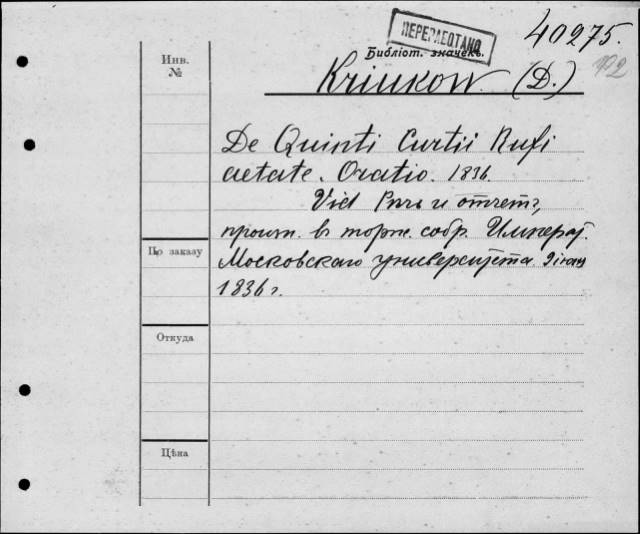 ПЕРЕРАБОТАНО
40275.
Библіот. значекъ.
Инв.
№
Kriukow (D.)
De Quinti Curtii Rufi
aetate. Oratio. 1836.
Vid и отчет,
произн. в торж. собр. Императ.
По заказу
Московскаго университета
1836 г.
Откуда
Цѣна